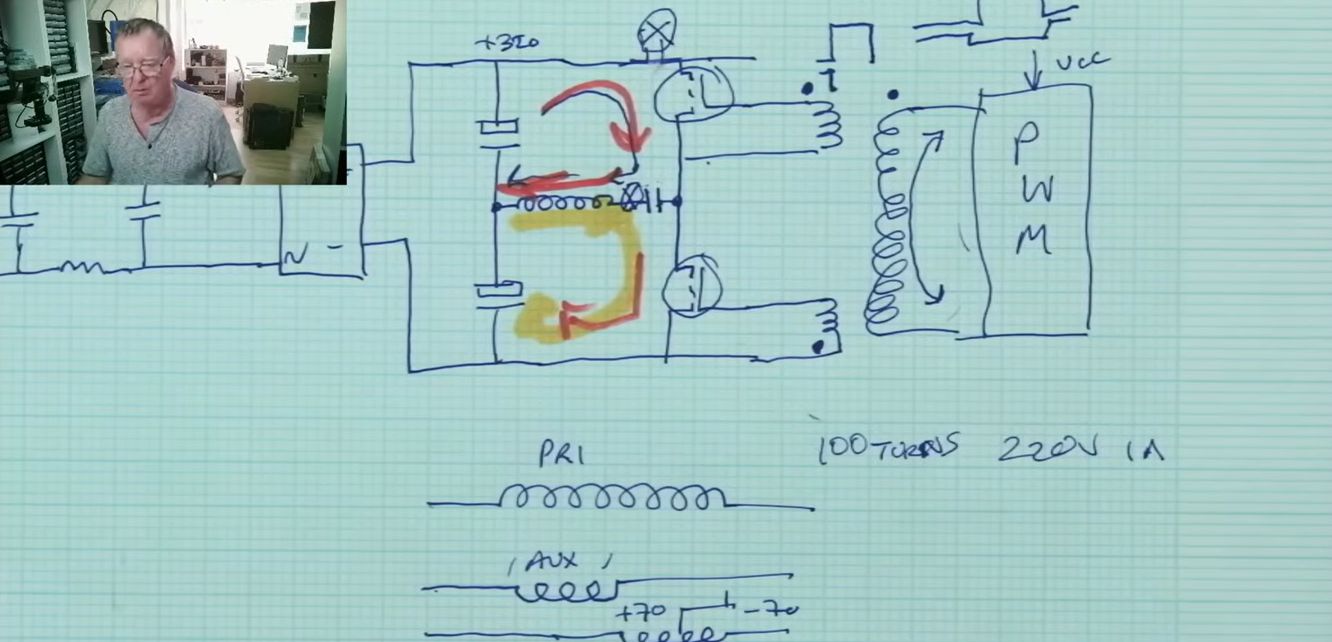 +320
VCC
PWM
N -
PRI
100 TURNS 220V 1A
AUX
+70 -70